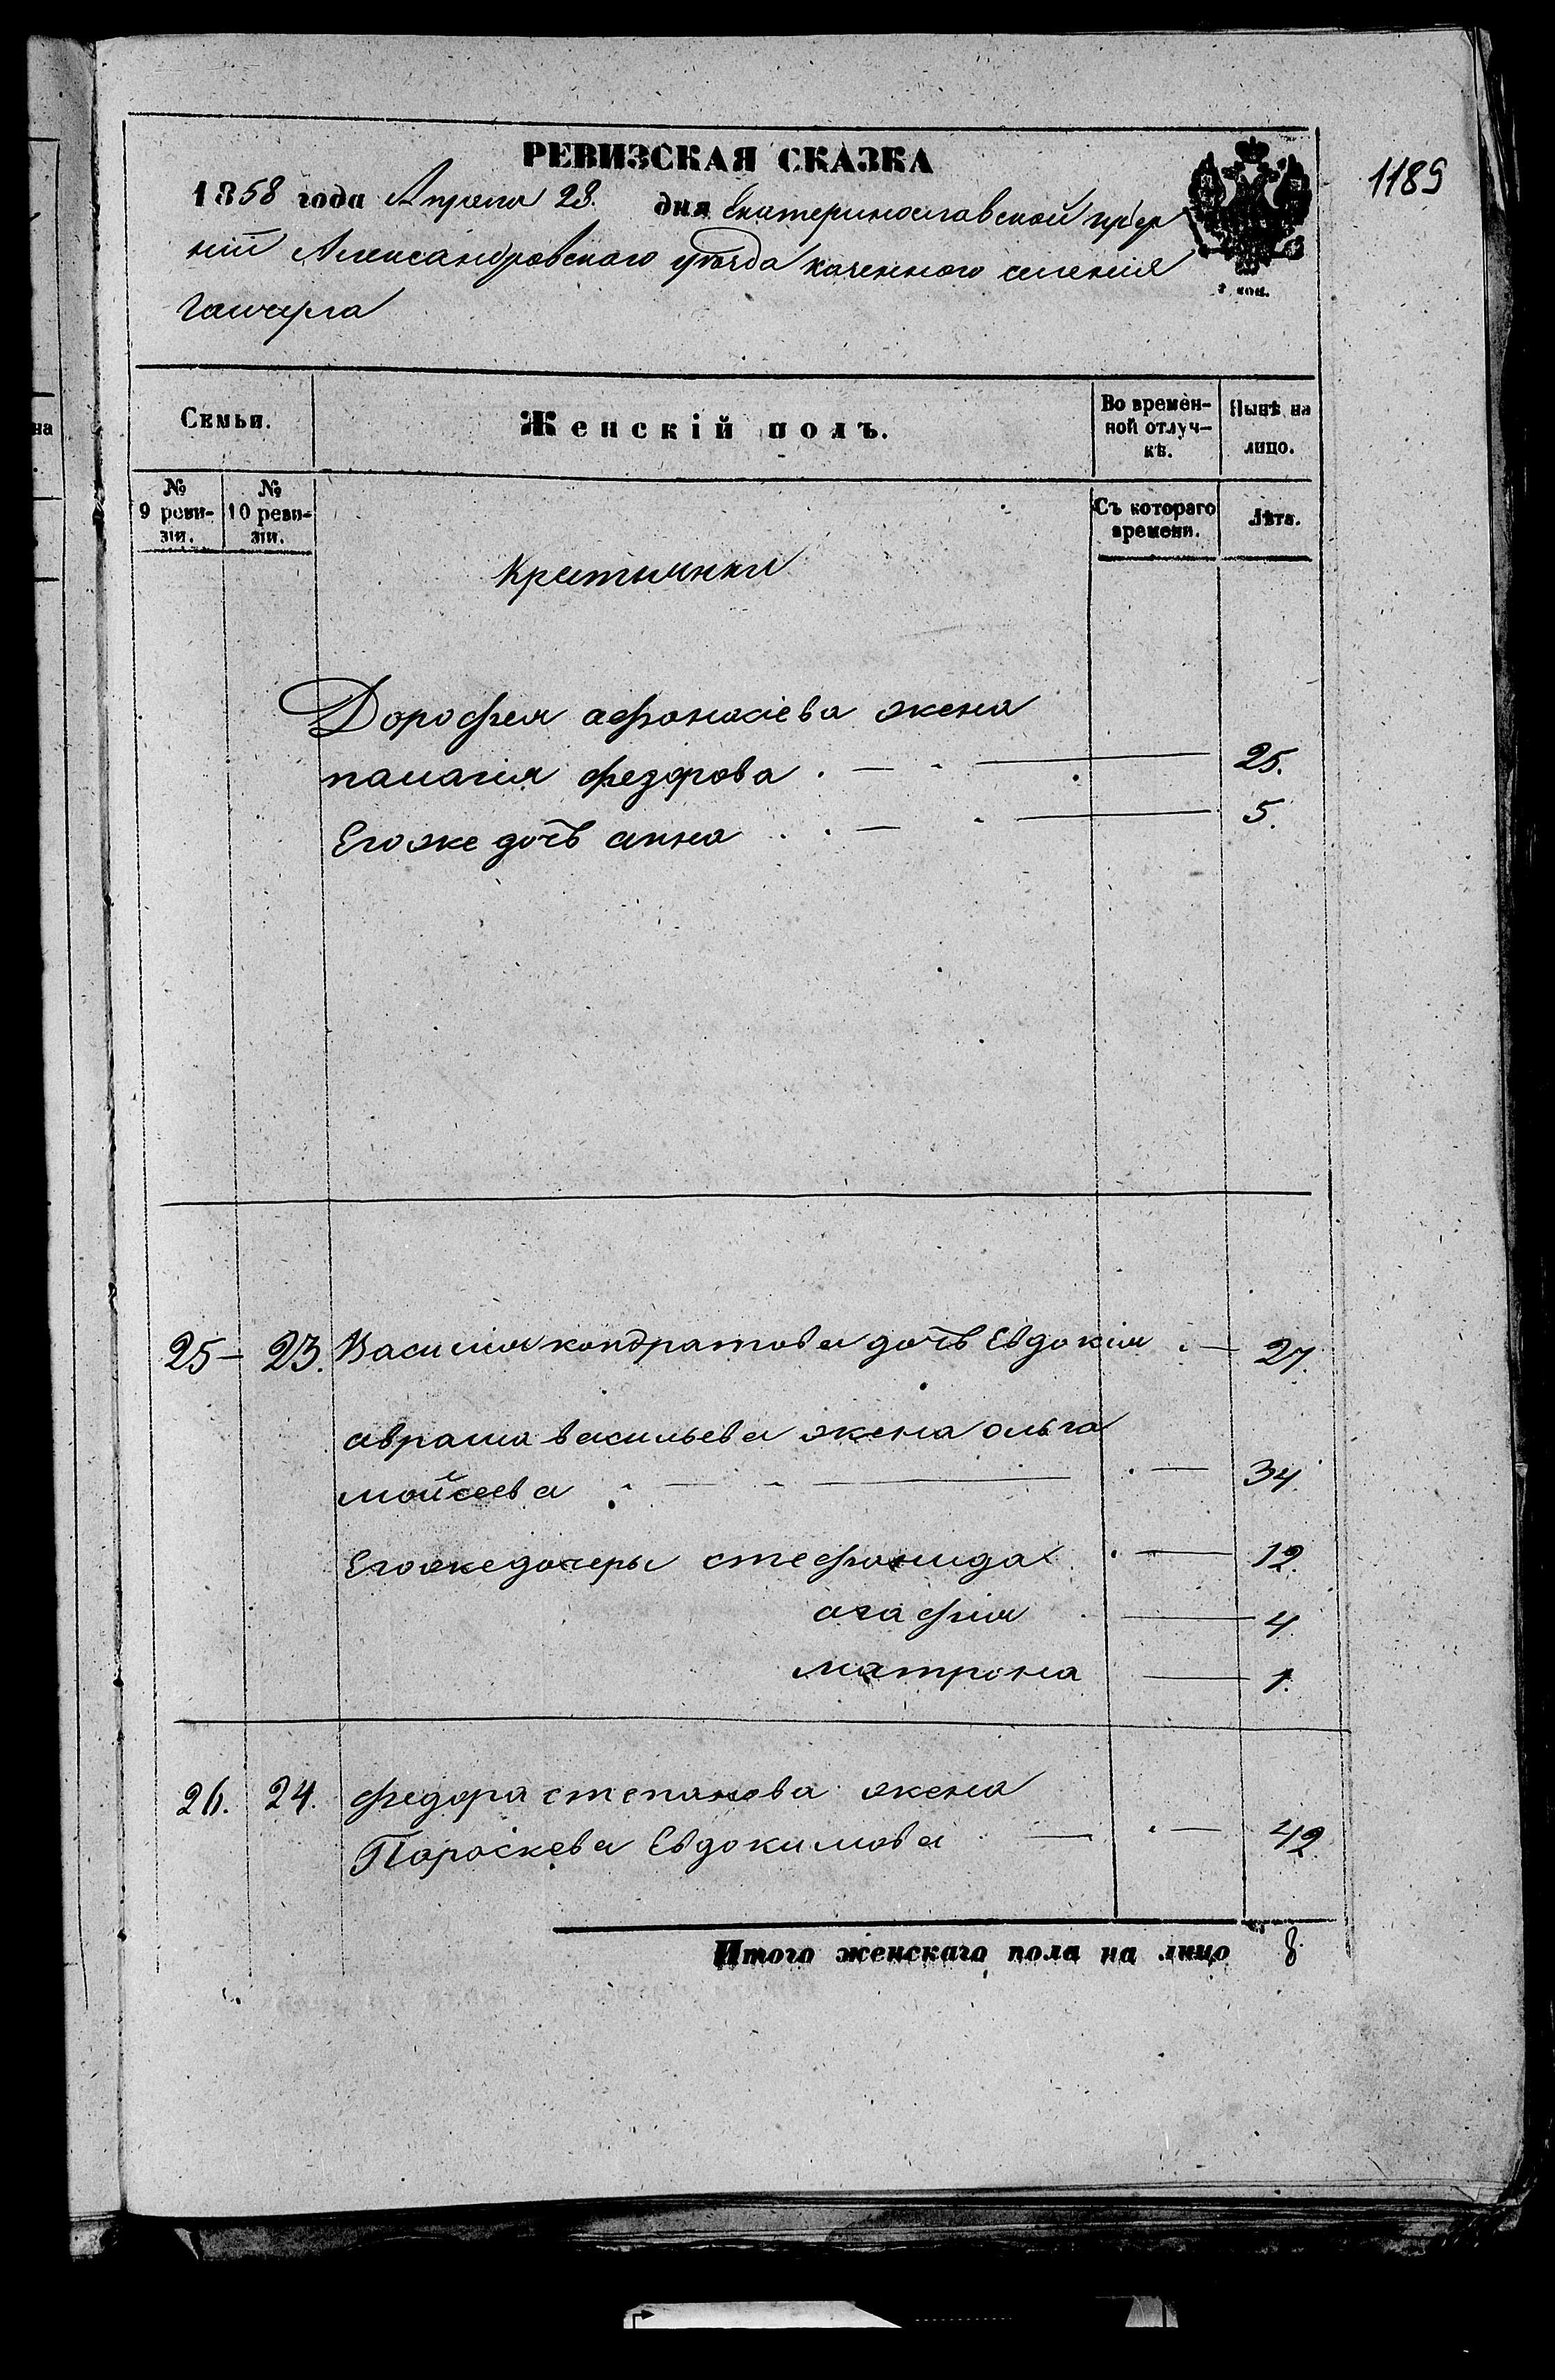 1189
РЕВИЗСКАЯ СКАЗКА
1858 года Апреля 28. дня Екатеринославской губер
нии Александровского уѣзда казенного селения
Гайчула
Семьи.
Женскій полъ.
Во времен-
ной отлуч-
кѣ.
Нынѣ на
лицо.
№
9 реви-
зіи.
№
10 реви-
зіи.
Съ котораго
времени.
Лѣта.
Крестьянки
Дорофея афонасіева жена
палагия федорова 25.
Егоже дочъ анна 5.
25 – 23. Василия кондратова дочъ Евдокия 27.
аврама васильева жена ольга
мойсеева 34.
Егоже дочеры стефонида 12.
агафия 4
матрона 1.
26. 24. федора степанова жена
Параскева Евдокимова 42
Итого женскаго пола на лицо 8